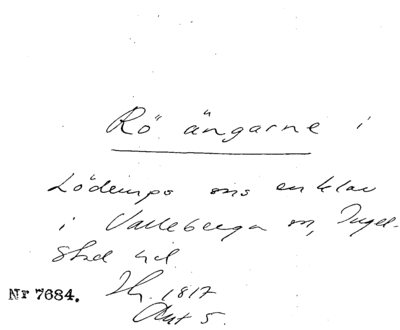 Rö ängarne i
Löderups sns enklav
i Valleberga sn, Ingel-
stad hd
Nr 7684. 1817
Akt 5.